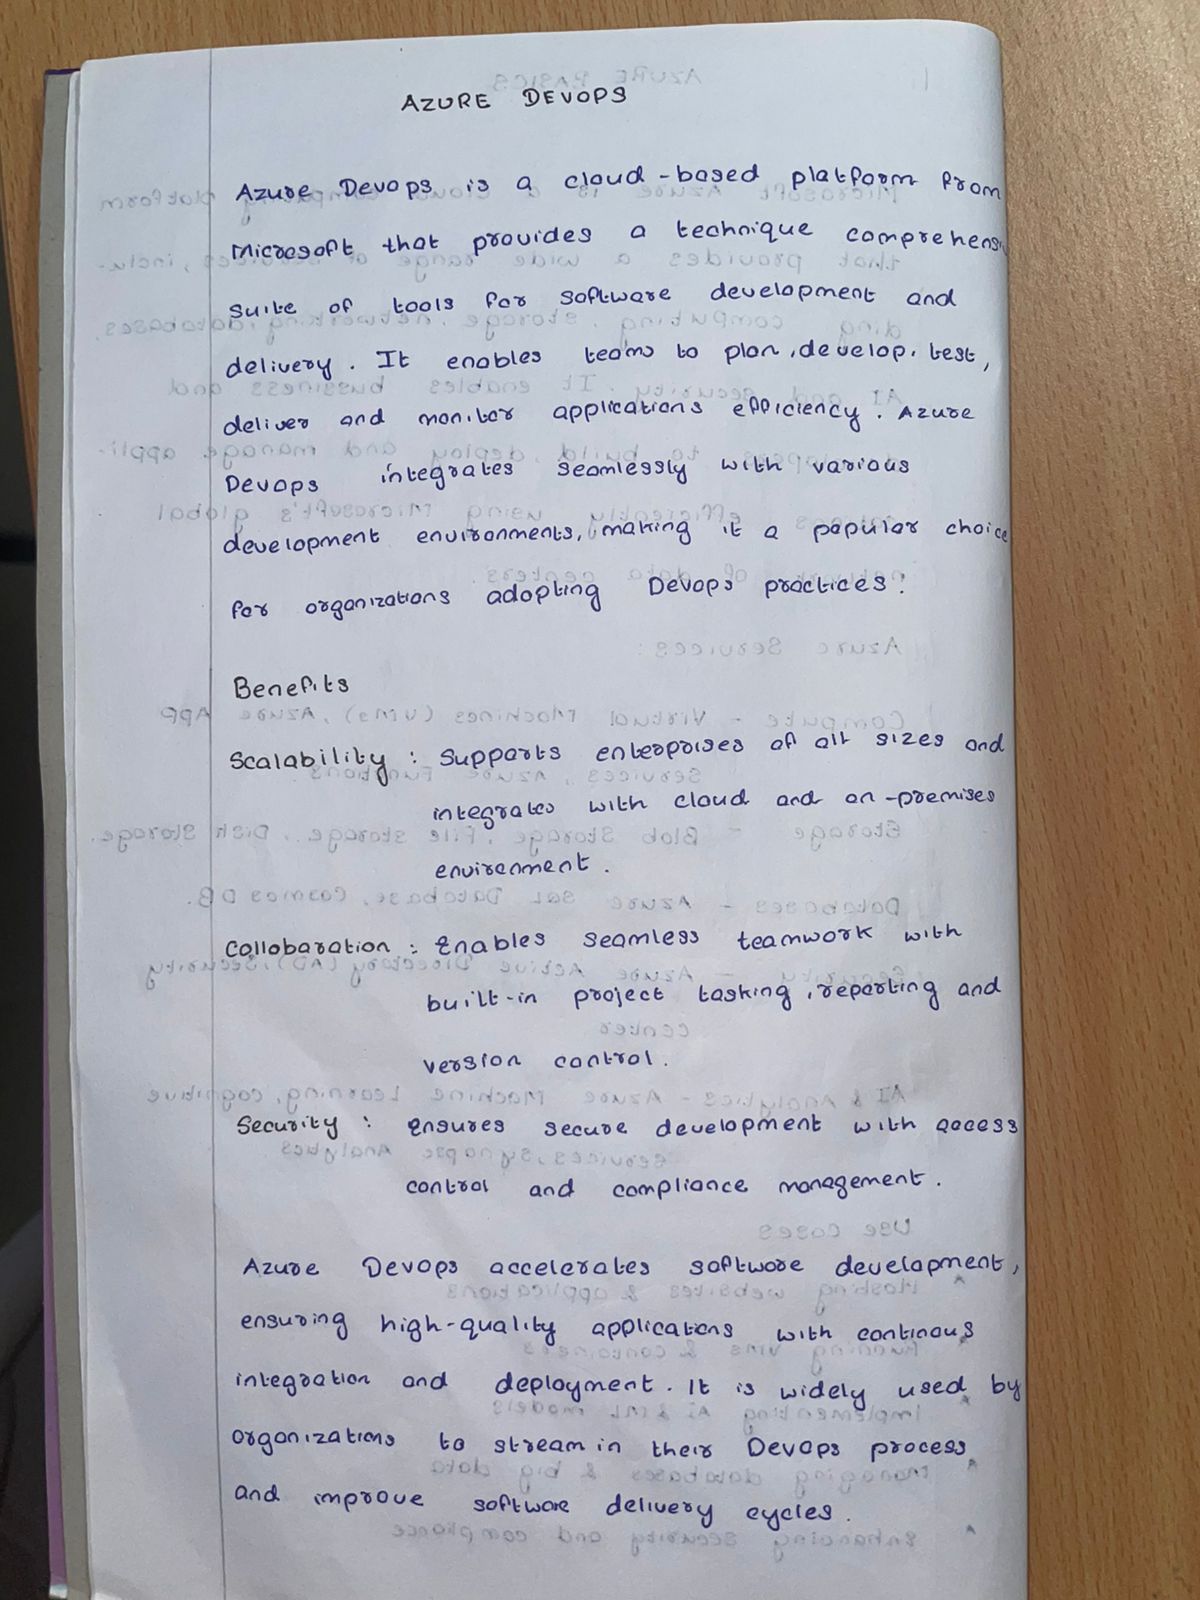 AZURE DEVOPS
Azure Devops is a cloud-based platform from
Microsoft that provides a technique comprehensi
suite of tools for software development and
delivery. It enables teams to plan, develop, test,
deliver and monitor applications efficiency. Azure
Devops integrates seamlessly with various
development environments, making it a popular choice
for organizations adopting Devops practices.
Benefits
Scalability : Supports enterprises of all sizes and
integrates with cloud and on-premises
environment.
Collobaration : Enables seamless teamwork with
built-in project tasking, reporting and
version control.
Security : Ensures secure development with access
control and compliance management.
Azure Devops accelerates software development,
ensuring high-quality applications with continous
integration and deployment. It is widely used by
organizations to stream in their Devops process
and improve software delivery cycles.